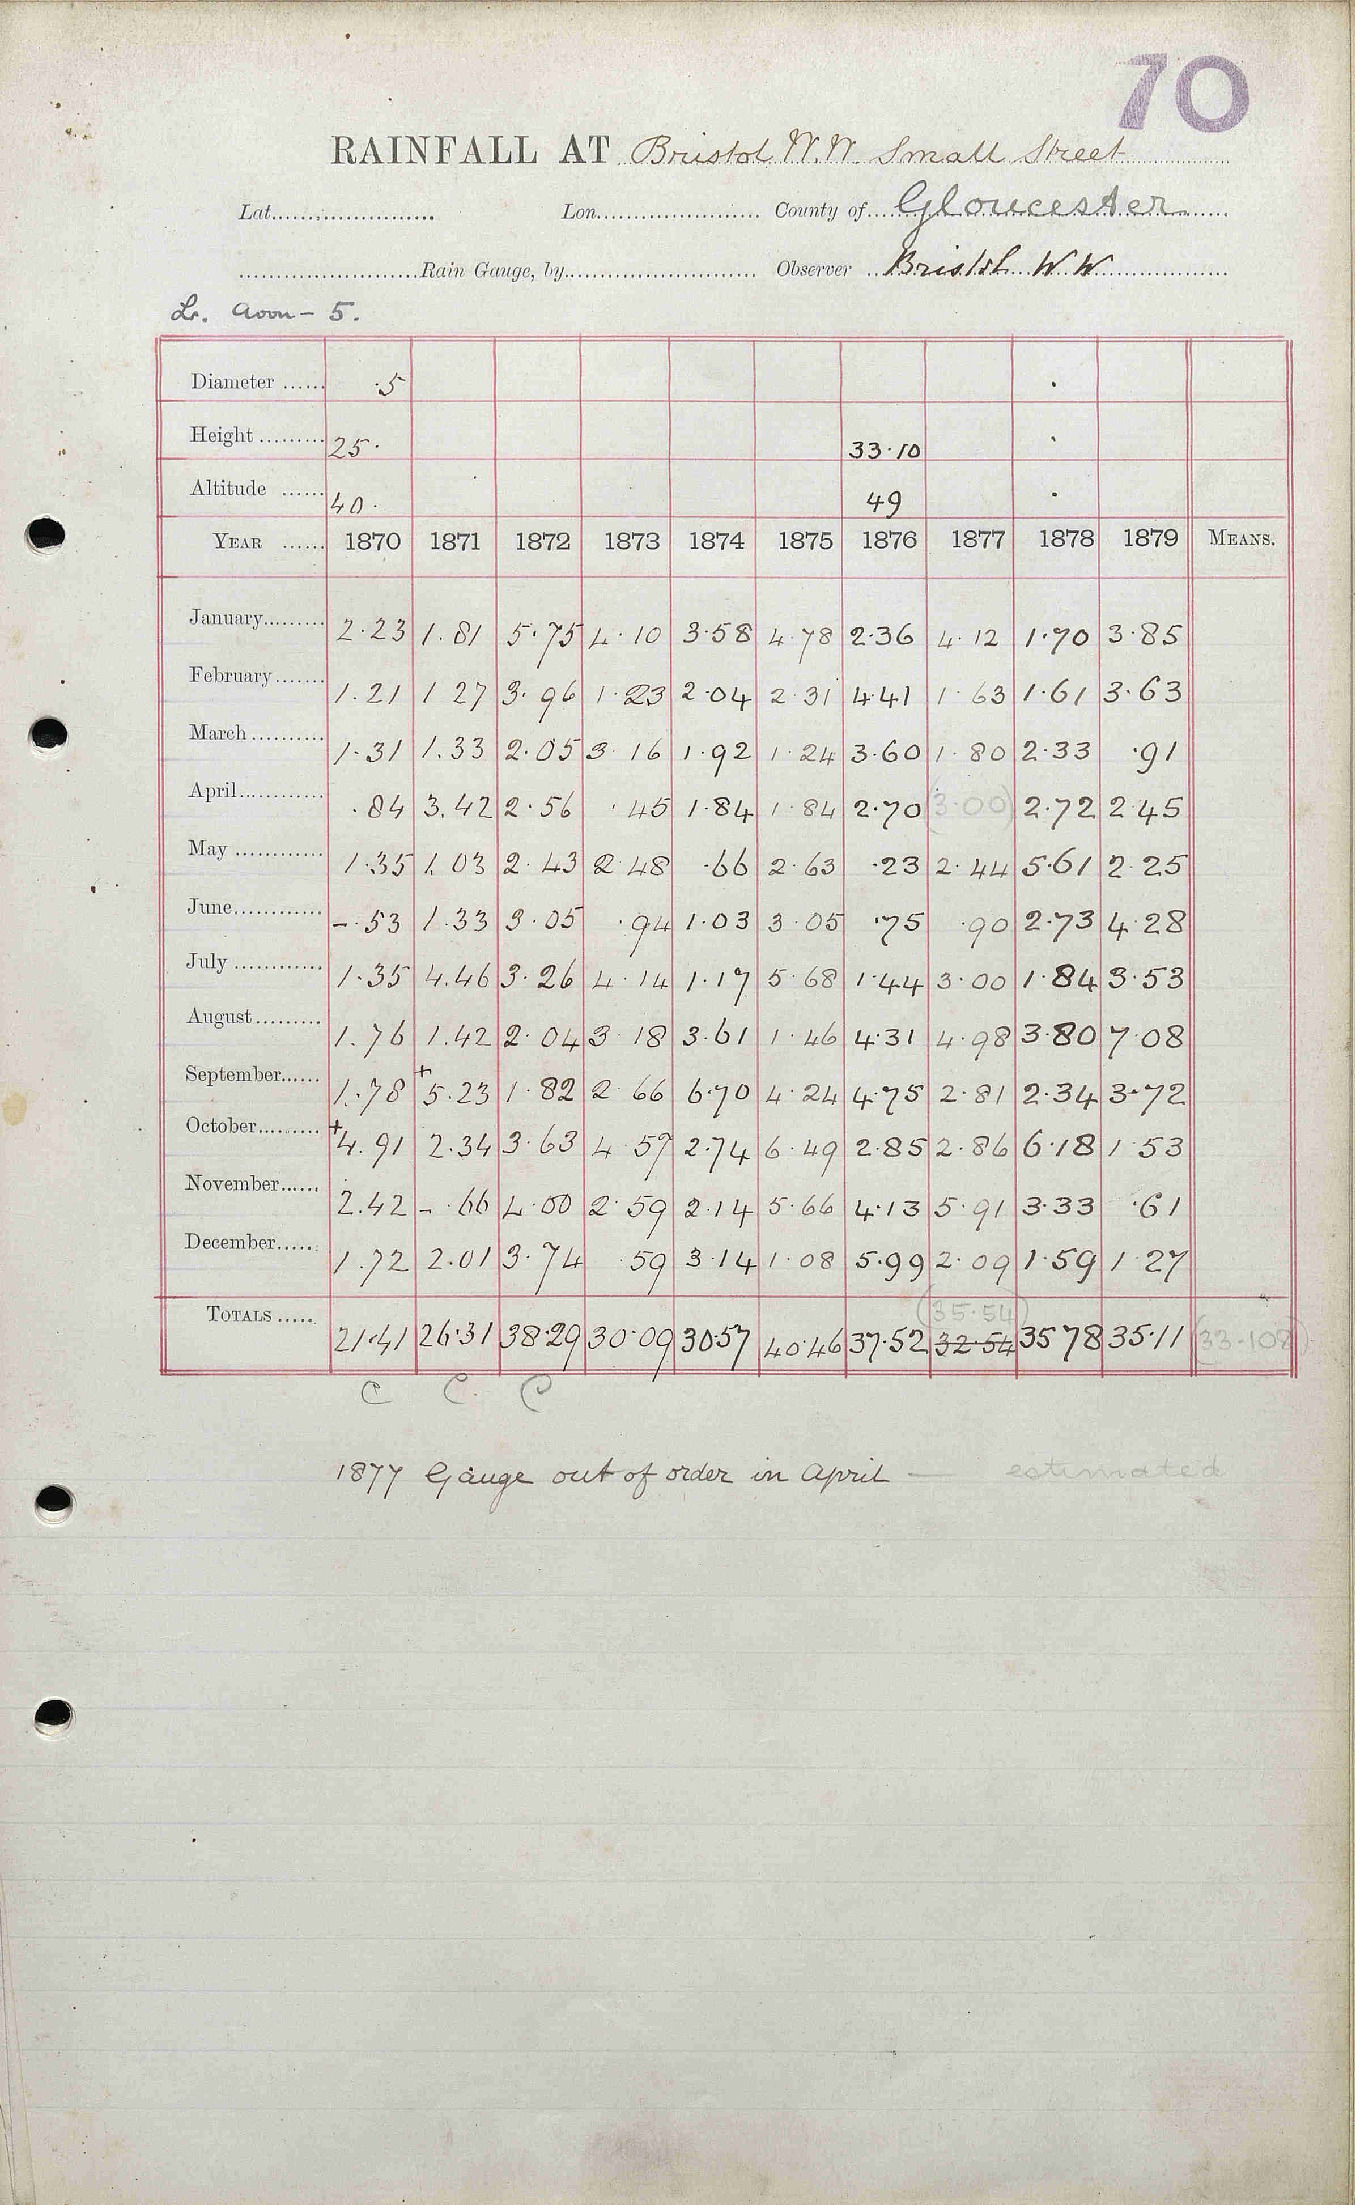 70
RAINFALL AT Bristol W.W. Small Street
Lat...................... Lon...................... County of.... Gloucester
.........................Rain Gauge, by.......................... Observer .. Bristol W W
Lr. Avon - 5.
Diameter ...... ·5
Height ......... 25· 33·10
Altitude ...... 40· 49
YEAR ...... 1870 1871 1872 1873 1874 1875 1876 1877 1878 1879 MEANS.
January......... 2·23 1.81 5·75 4·10 3·58 4·78 2·36 4·12 1·70 3·85
February....... 1.21 1 27 3·96 1·23 2·04 2·31 4·41 1·63 1·61 3·63
March .......... 1·31 1.33 2·05 3·16 1·92 1·24 3·60 1·80 2·33 ·91
April............ ·84 3.42 2·56 ·45 1·84 1·84 2·70 (3·00) 2·72 2·45
May ............ 1·35 1.03 2·43 2·48 ·66 2·63 ·23 2·44 5·61 2·25
June............ –·53 1·33 3·05 ·94 1·03 3·05 ·75 ·90 2·73 4·28
July ............ 1·35 4.46 3·26 4·14 1·17 5·68 1·44 3·00 1·84 3·53
August......... 1.76 1.42 2·04 3·18 3·61 1·46 4·31 4·98 3·80 7·08
September...... 1.·78 +5·23 1·82 2·66 6·70 4·24 4·75 2·81 2·34 3·72
October......... +4.91 2·34 3·63 4·57 2·74 6·49 2·85 2·86 6·18 1·53
November...... 2.42 –·66 4·00 2·59 2·14 5·66 4·13 5·91 3·33 ·61
December..... 1.72 2.01 3·74 ·59 3·14 1·08 5·99 2·09 1·59 1·27
(35·54)
TOTALS ..... 21·41 26·31 38·29 30·09 30·57 40·46 37·52 32·54 35 78 35·11 (33·108)
C C. C
1877 Gauge out of order in April – estimated